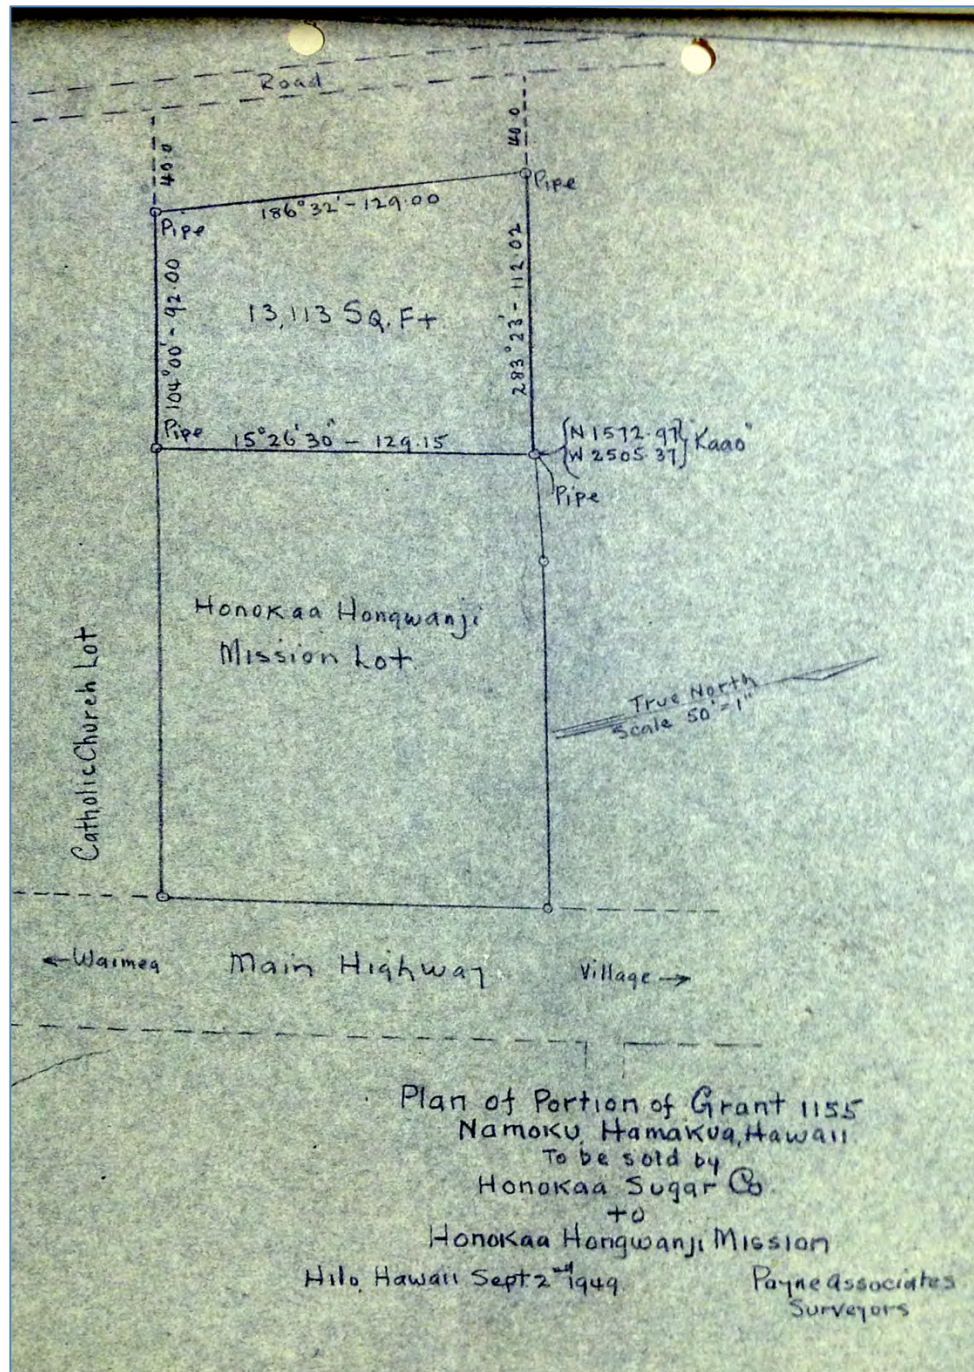 Road
40.0
40.0
Pipe
186°32' - 129.00
Pipe
104°00' - 92.00
283°23' - 112.02
13,113 SQ. Ft.
Pipe
15°26'30" - 129.15
{N 1572.97} "Kaao"
{W 2505.37}
Pipe
Honokaa Hongwanji
Mission Lot.
Catholic Church Lot
True North
Scale 50' = 1"
←Waimea
Main Highway
Village→
Plan of Portion of Grant 1155
Namoku, Hamakua, Hawaii.
To be sold by
Honokaa Sugar Co.
to
Honokaa Hongwanji Mission
Hilo, Hawaii Sept. 2nd 1949.
Payne Associates
Surveyors